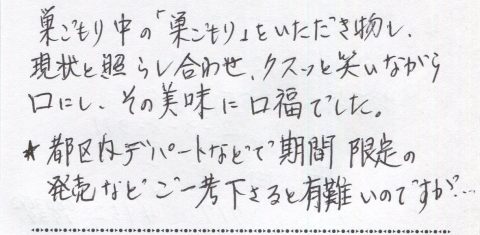 巣ごもり中の「巣ごもり」をいただき物し、
現状と照らし合わせ、クスッと笑いながら
口にし、その美味に口福でした。
★都区内デパートなどで期間限定の
発売などご一考下さると有難いのですが…